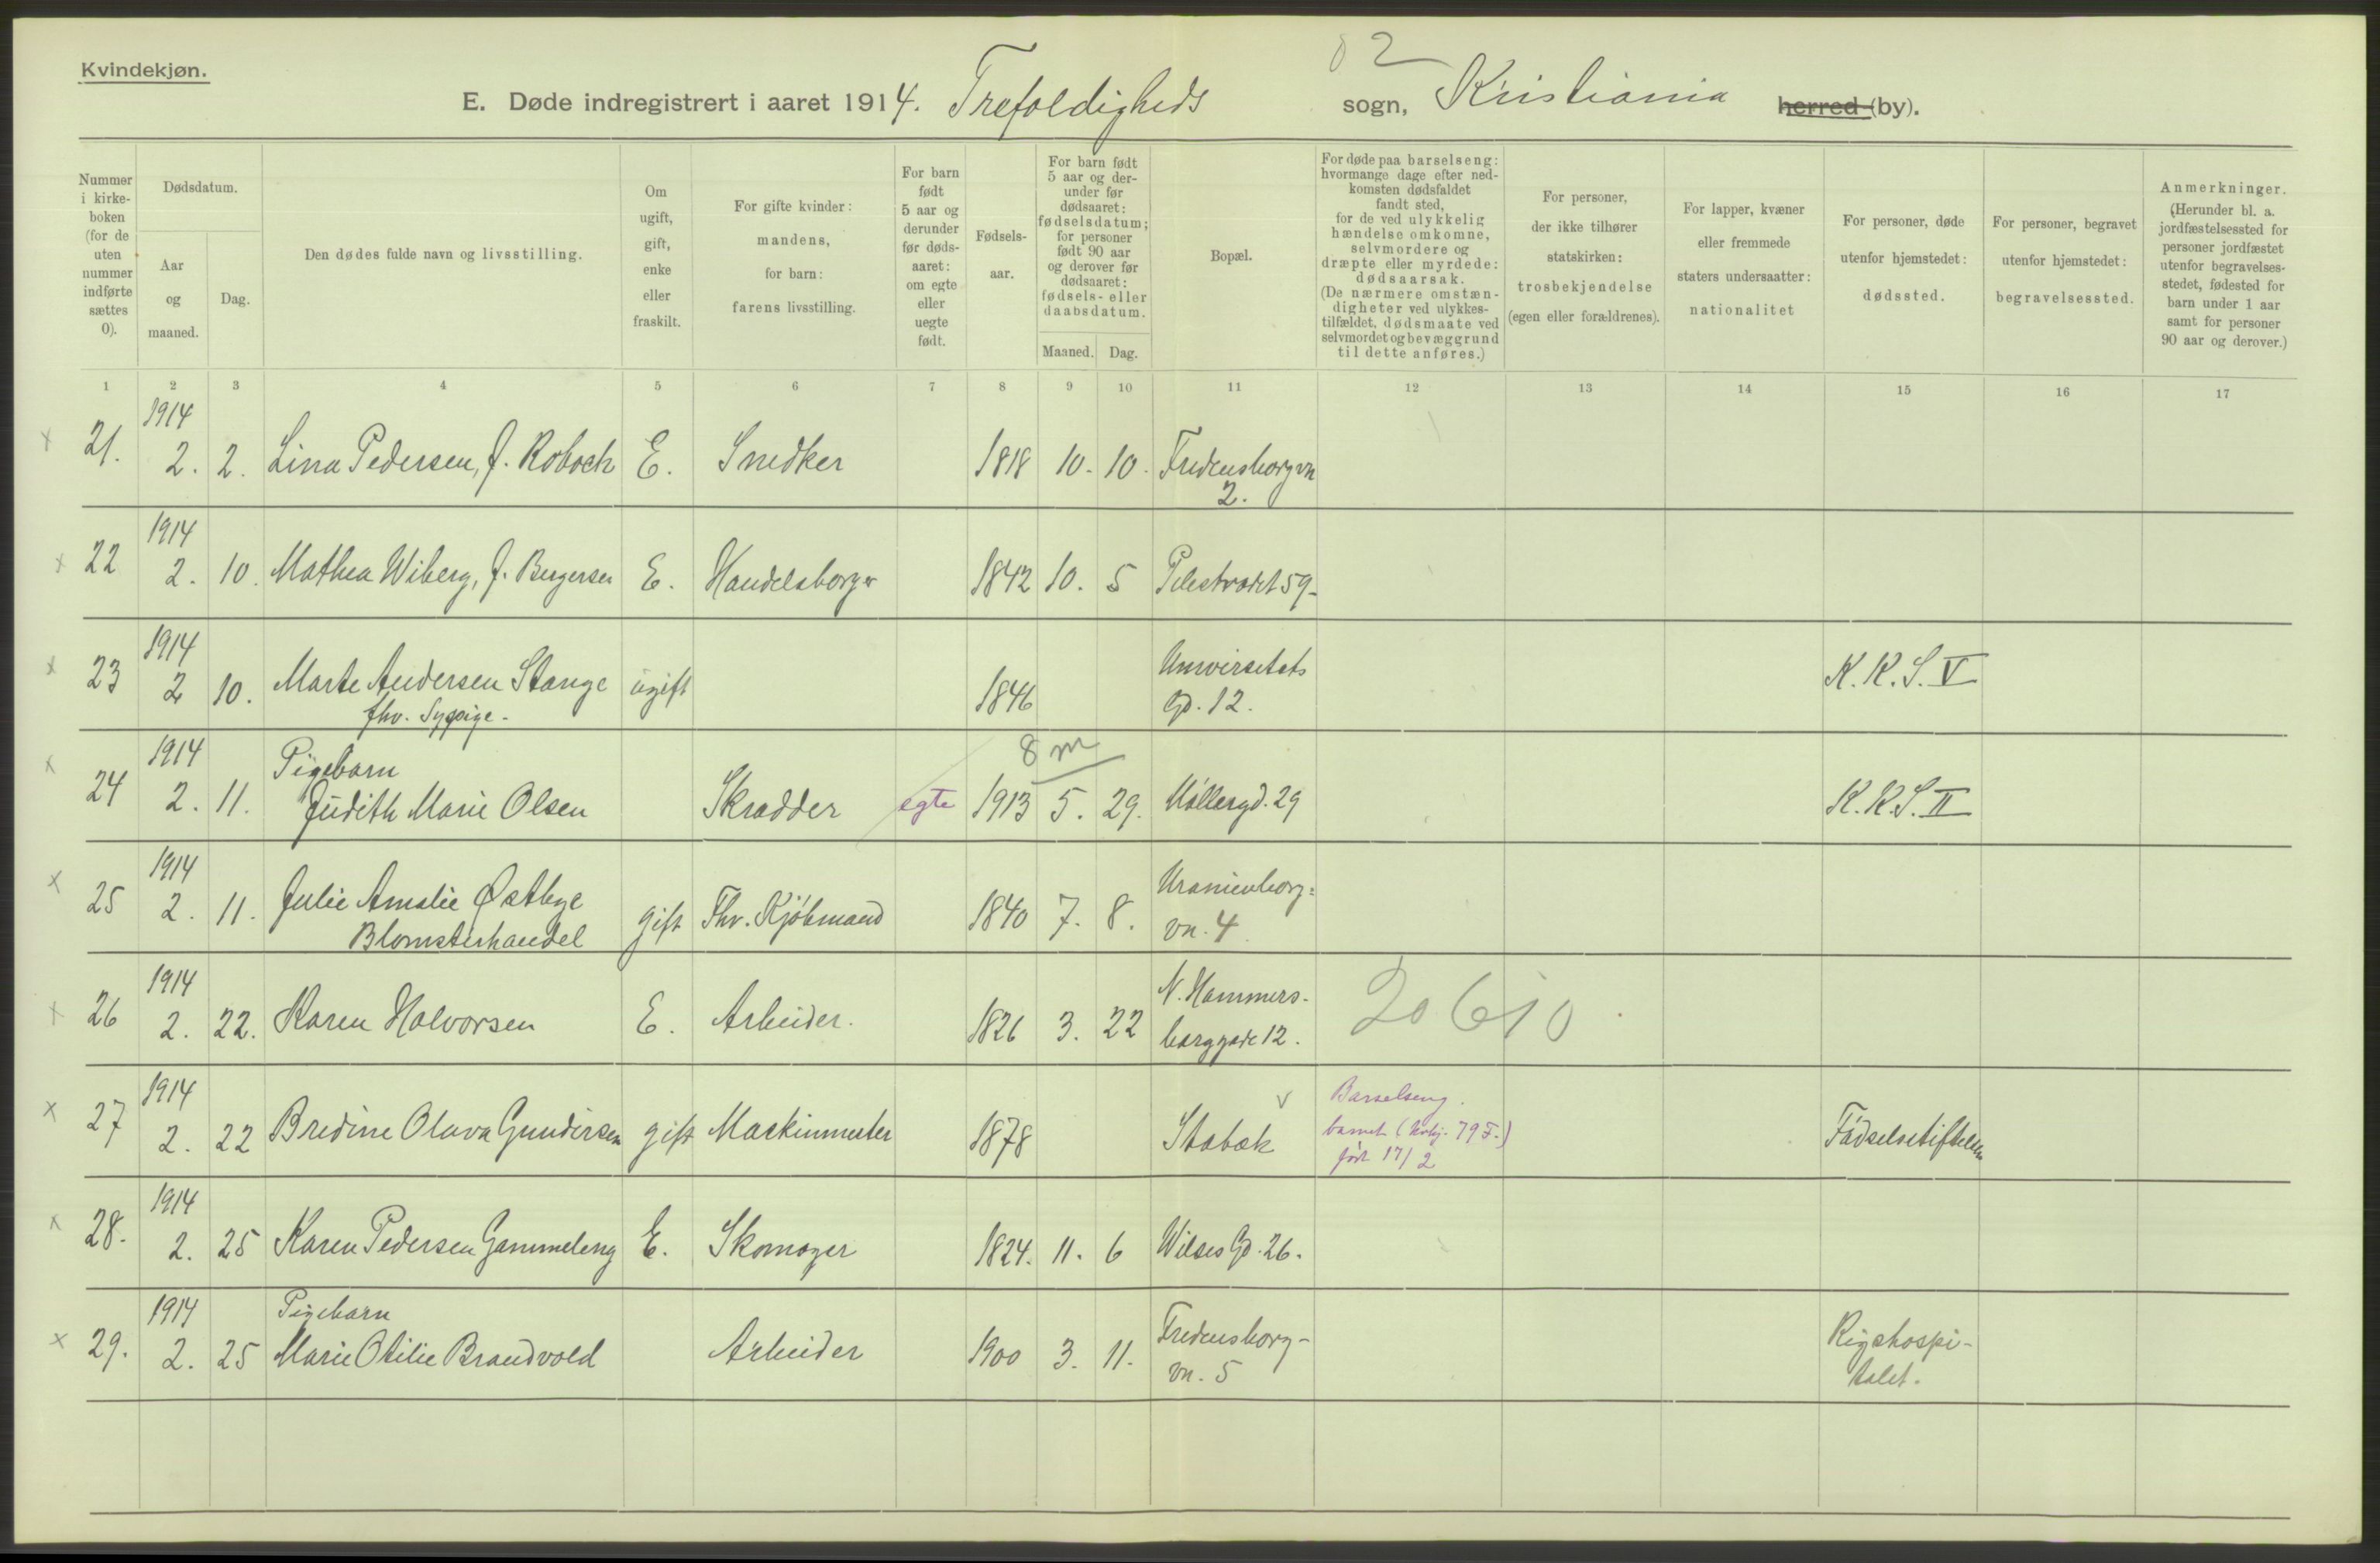 Kvindekjøn.
82
E. Døde indregistrert i aaret 1914. Trefoldigheds sogn, Kristiania herred (by).
Nummer i kirkeboken (for de uten nummer indførte sættes 0).
Dødsdatum.
Aar og maaned.
Dag.
Den dødes fulde navn og livsstilling.
Om ugift, gift, enke eller fraskilt.
For gifte kvinder: mandens, for barn: farens livsstilling.
For barn født 5 aar og derunder før dødsaaret: om egte eller uegte født.
Fødselsaar.
For barn født 5 aar og derunder før dødsaaret: fødselsdatum; for personer født 90 aar og derover før dødsaaret: fødsels- eller daabsdatum.
Maaned. Dag.
Bopæl.
For døde paa barselseng: hvormange dage efter nedkomsten dødsfaldet fandt sted, for de ved ulykkelig hændelse omkomne, selvmordere og dræpte eller myrdede: dødsaarsak. (De nærmere omstændigheter ved ulykkestilfældet, dødsmaate ved selvmordet og bevæggrund til dette anføres.)
For personer, der ikke tilhører statskirken: trosbekjendelse (egen eller forældrenes).
For lapper, kvæner eller fremmede staters undersaatter: nationalitet
For personer, døde utenfor hjemstedet: dødssted.
For personer, begravet utenfor hjemstedet: begravelsessted.
Anmerkninger. (Herunder bl. a. jordfæstelsessted for personer jordfæstet utenfor begravelsesstedet, fødested for barn under 1 aar samt for personer 90 aar og derover.)
1 2 3 4 5 6 7 8 9 10 11 12 13 14 15 16 17
x 21. 1914 2. 2. Lina Pedersen, f. Roboch E. Snedker 1818 10. 10. Fredensborgvn 2.
x 22 1914 2. 10. Mathea Wiberg, f. Bergersen E. Handelsborger 1842 10. 5 Pilestrædet 59.
x 23 1914 2 10. Marte Andersen Stange ugift 1846 Universitets K.K.S. V
fhv. Sypige. Gd. 12.
x 24 1914 2. 11. Pigebarn 8 m
Judith Marie Olsen Skrædder egte 1913 5. 29. Møllergd. 29 K.K.S. II
x 25 1914 2. 11. Julie Amalie Østbye gift Fhv. Kjøbmand 1840 7. 8. Uranienborg=
Blomsterhandel vn. 4
x 26 1914 2. 22. Karen Halvorsen E. Arbeider. 1826 3. 22 N. Hammers-
borggade 12. 20 6 10
x 27 1914 2. 22 Bredine Olava Gundersen gift Maskinmester 1878 Stabæk v Barselseng. Fødselsstiftelsen
barnet ( 79 F.)
født 17/2
x 28. 1914 2. 25 Karen Pedersen Gammeleng E. Skomager 1824. 11. 6 Wilses Gd. 26.
x 29. 1914 2. 25 Pigebarn
Marie Otilie Brandvold Arbeider 1900 3. 11. Fredensborg- Rigshospi-
vn. 5 talet.